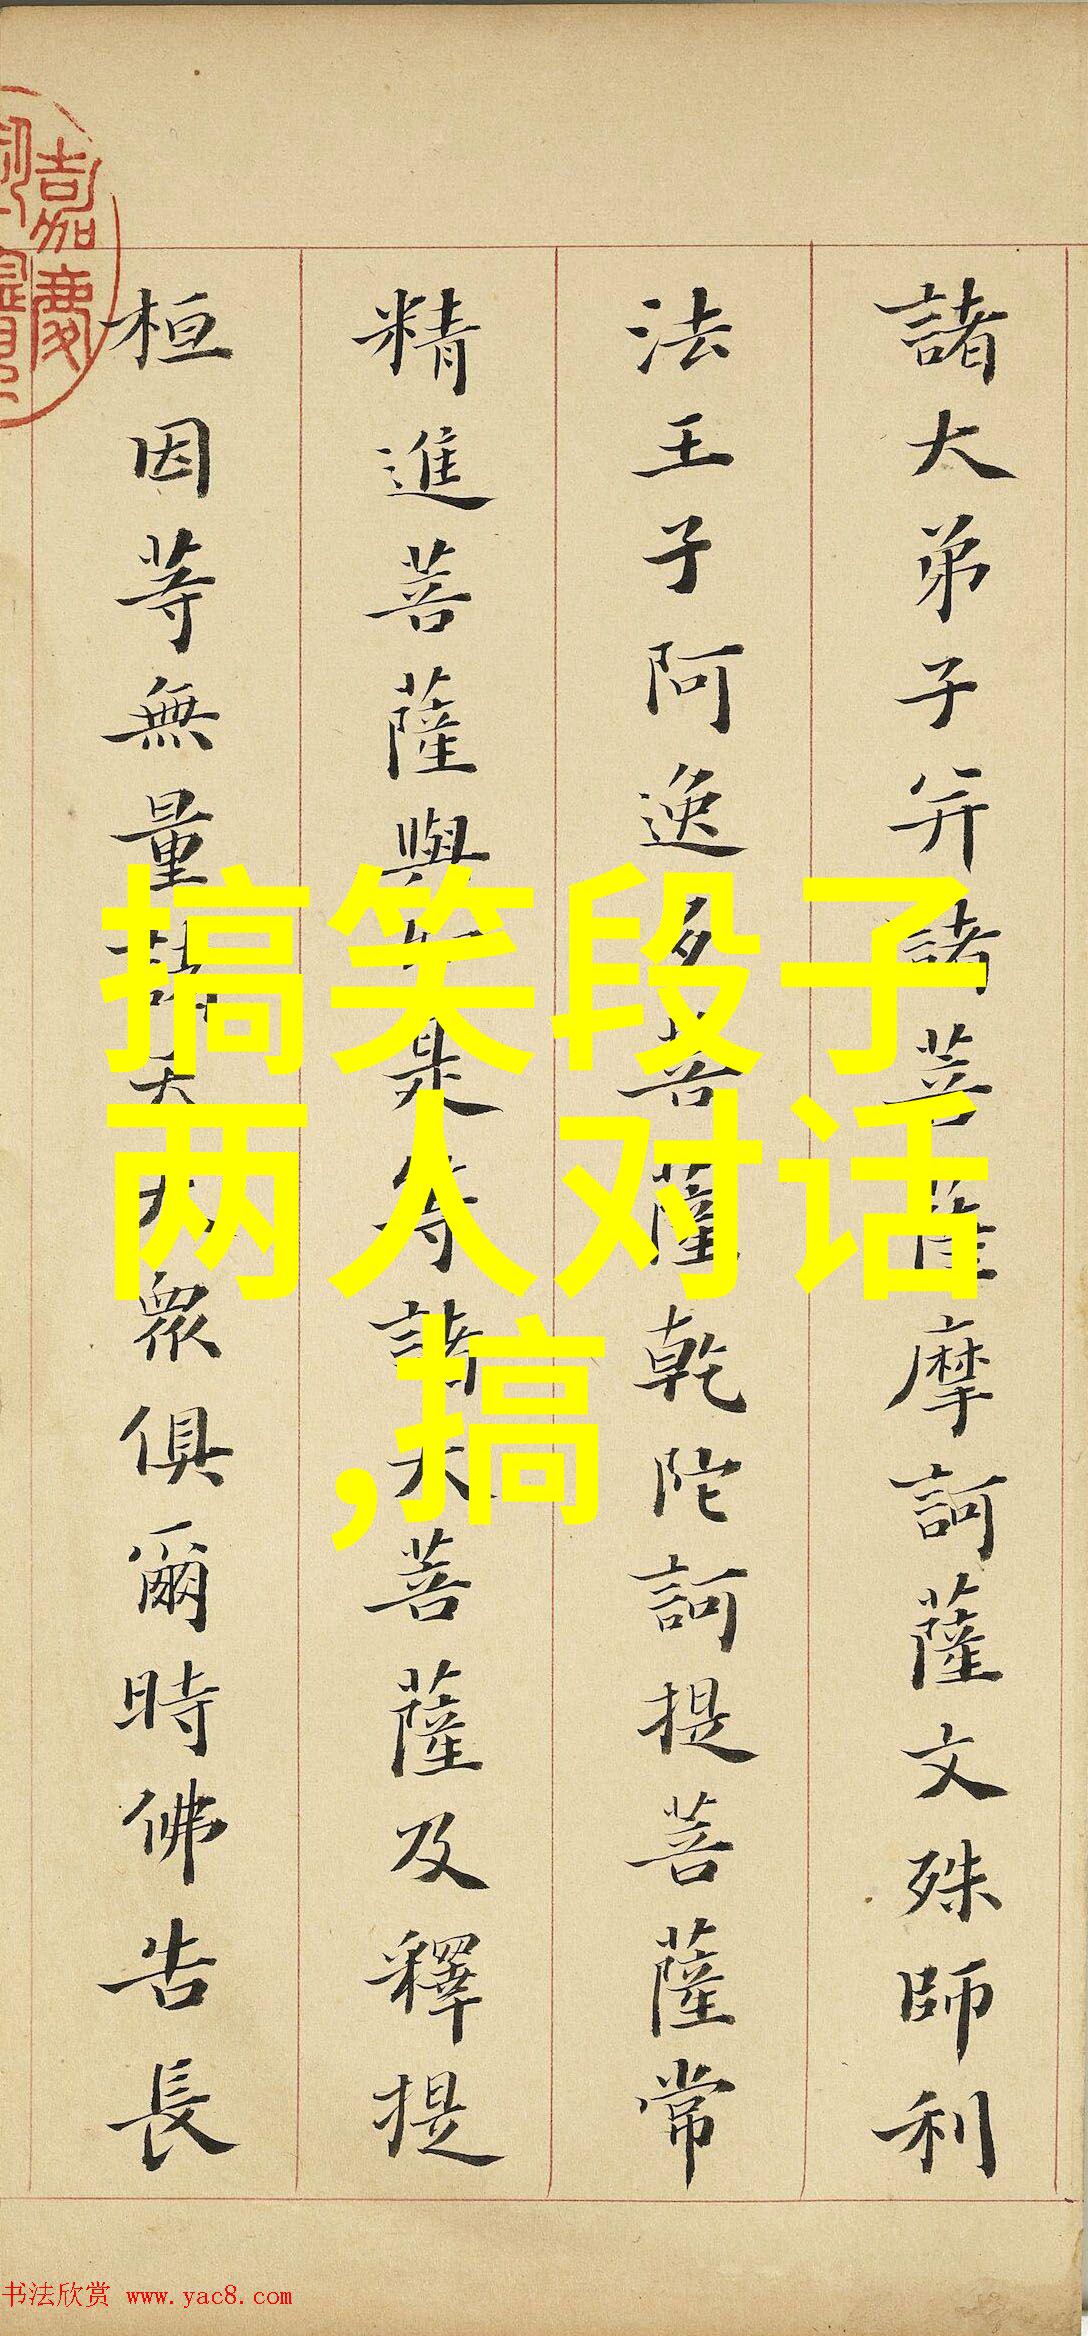 諸大弟子并諸菩薩摩訶薩文殊師利
法王子阿逸多菩薩乾陀訶提菩薩常
精進菩薩與如是等諸大菩薩及釋提
桓因等無量諸天大眾俱爾時佛告長
嘉慶
搞笑段子
两人对话
,搞
书法欣赏 www.yac8.com